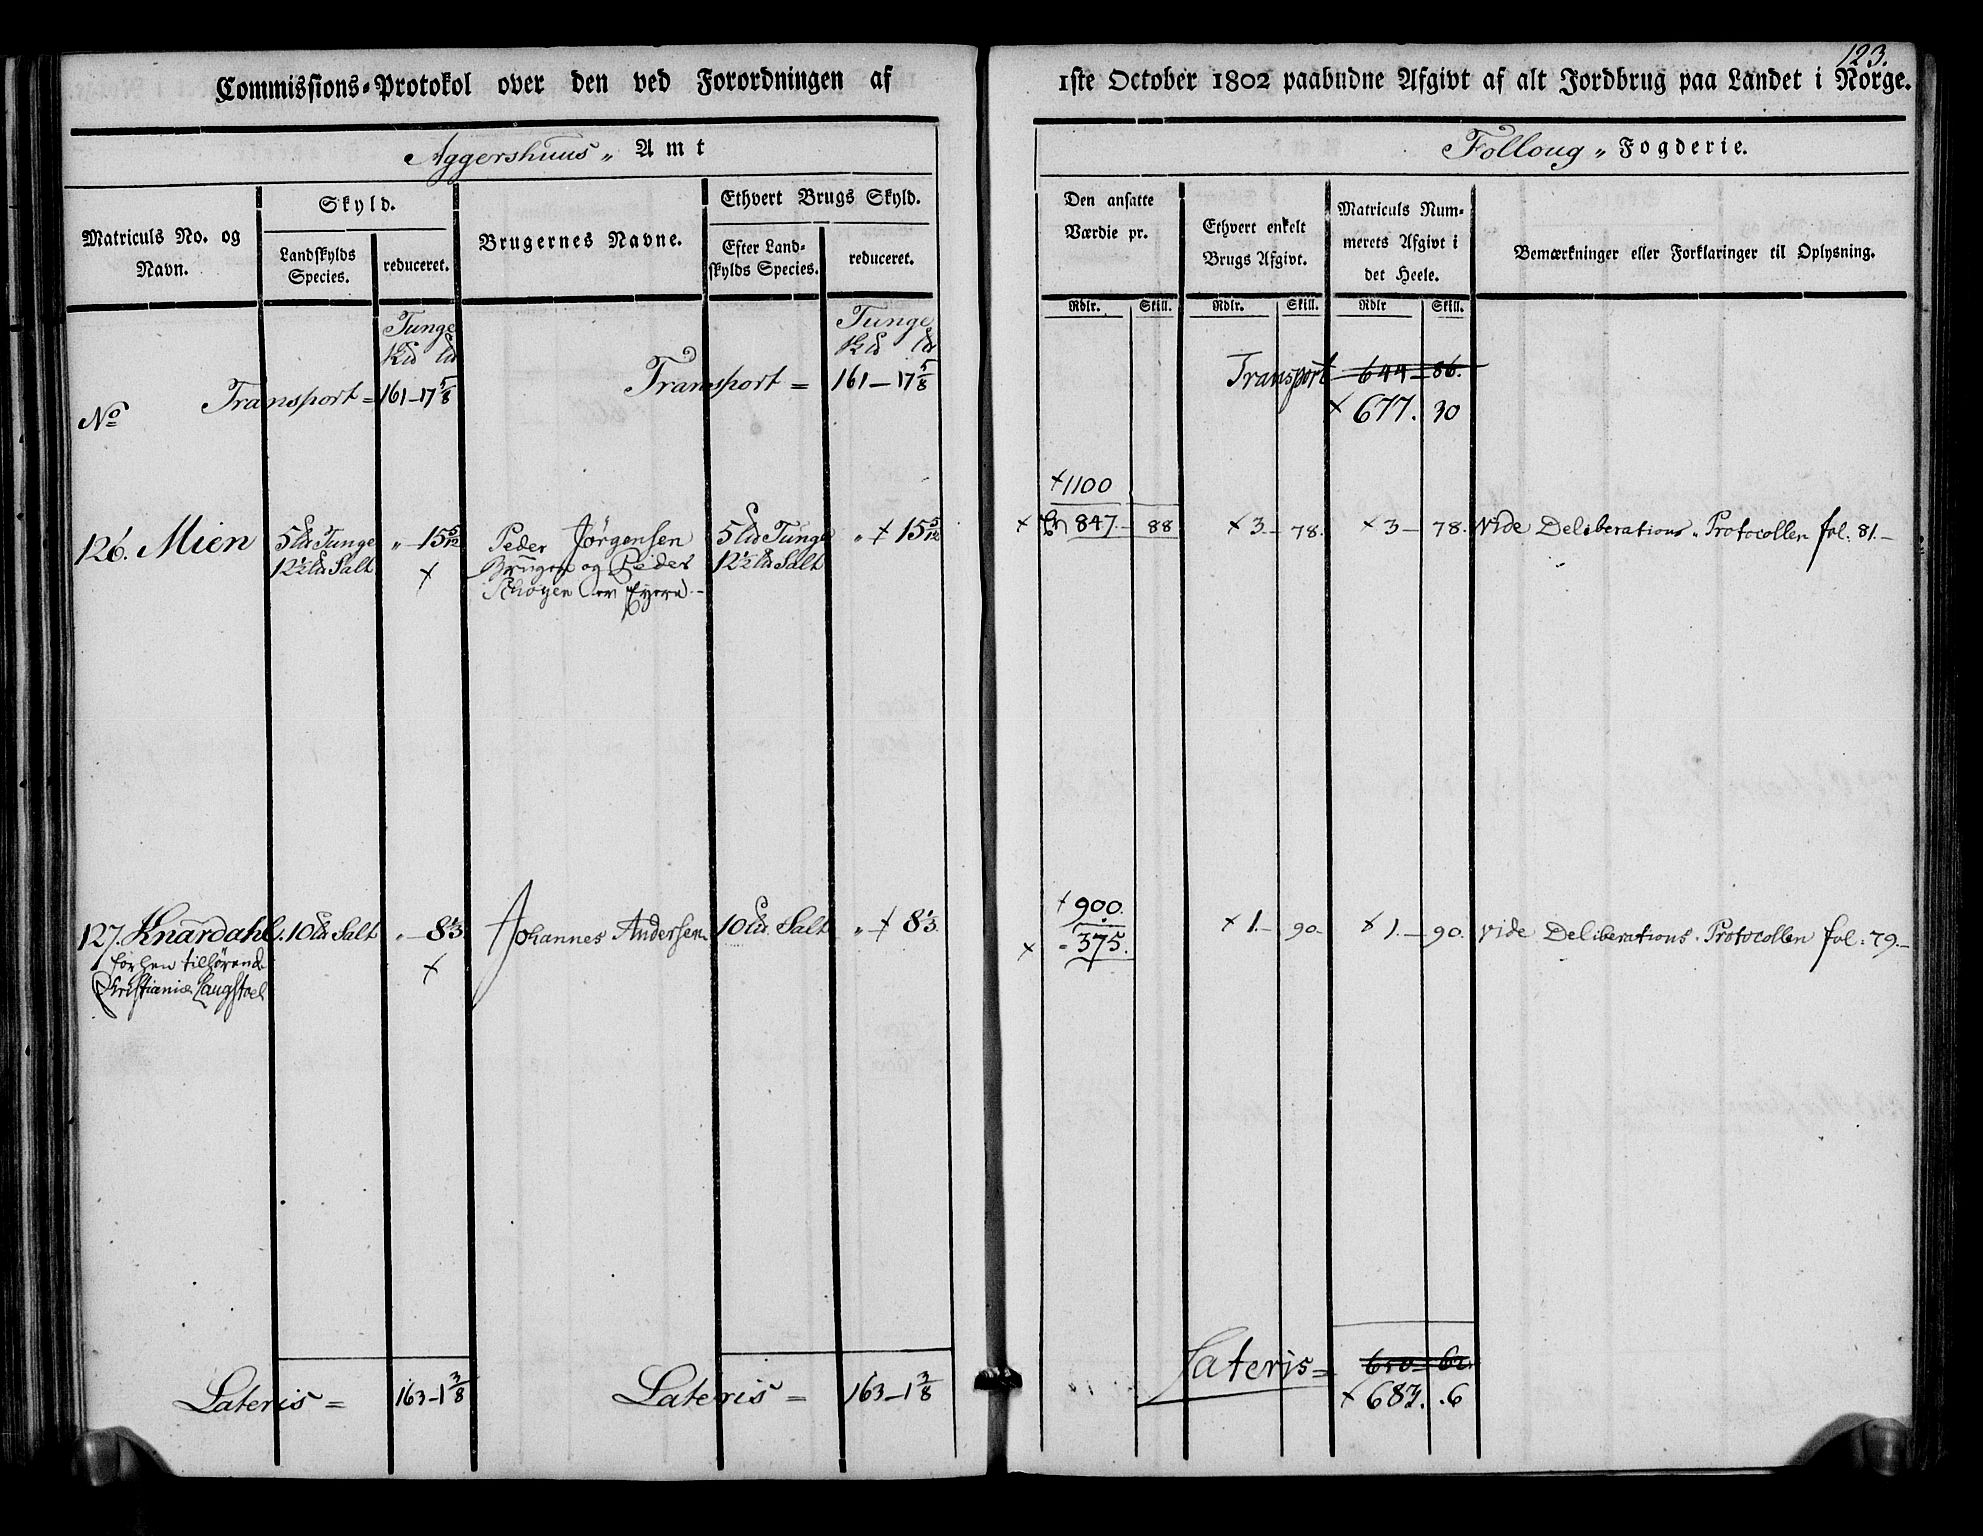 123.
Commissions-Protokol over den ved Forordningen af
1ste October 1802 paabudne Afgivt af alt Jordbrug paa Landet i Norge.
Aggershuus„ Amt
Folloug„ Fogderie.
Matriculs No. og
Navn.
Skyld.
Landskylds
Species.
reduceret.
Brugernes Navne.
Ethvert Brugs Skyld.
Efter Land-
skylds Species.
reduceret.
Den ansatte
Værdie pr.
Ethvert enkelt
Brugs Afgivt.
Matriculs Num-
merets Afgivt i
det Heele.
Bemærkninger eller Forklaringer til Oplysning.
Rdlr. Skill. Rdlr. Skill. Rdlr Skill.
Tunge
Tunge
Transport = 161-17 5/8
Transport = 161-17 5/8
Transport 644-86.
× 677. 30
No
×1100
126. Mien 5 Tunge „-15 5/12 Peder Jørgensen 5 Tunge „ × 15 5/12 × 847.- 88 ×3.- 78. ×3- 78. Vide Deliberations„ Protocollen fol: 81.-
12½ Salt × Bruger og Peder 12½ Salt
Schøyen er Eyere.-
×900.
127. Knardahl. 10 Salt „-8⅓ Johannes Andersen 10 Salt „ × 8⅓ ×1.- 90- ×1.- 90. vide Deliberations„ Protocollen fol: 79.-
forhen tilhørende ×
× -375.
Christiania Laugstoel
Lateris = 163-1 3/8
Lateris = 163-1 3/8
Lateris= 650-62.
× 683. .6